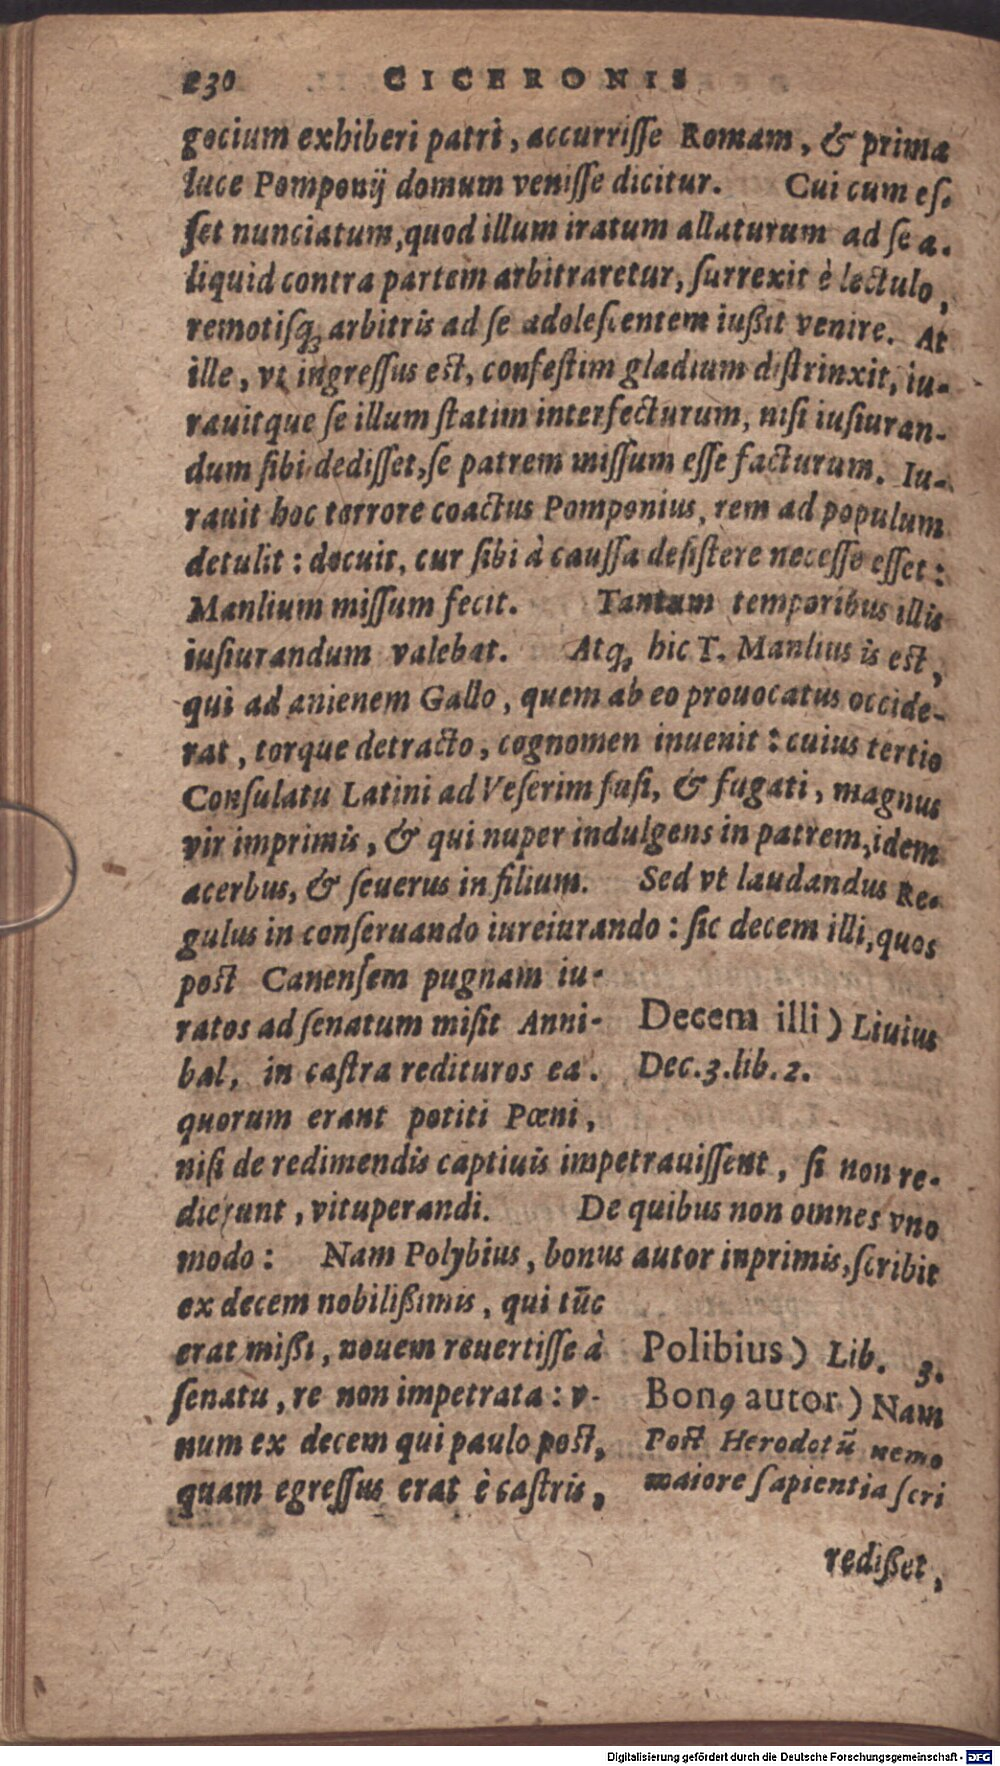 230 CICERONIS
gocium exhiberi patri, accurriſſe Romam, & prima
luce Pomponij domum veniſſe dicitur. Cui cum eſ-
ſet nunciatum, quod illum iratum allaturum ad ſe a-
liquid contra partem arbitraretur, ſurrexit è lectulo,
remotiſq; arbitris ad ſe adoleſcentem iußit venire. At
ille, vt ingreſſus eſt, confeſtim gladium diſtrinxit, iu-
rauitque ſe illum ſtatim interfecturum, niſi iuſiuran-
dum ſibi dediſſet, ſe patrem miſſum eſſe facturum. Iu-
rauit hoc terrore coactus Pomponius, rem ad populum
detulit: docuit, cur ſibi à cauſſa deſiſtere neceſſe eſſet:
Manlium miſſum fecit. Tantum temporibus illis
iuſiurandum valebat. Atq; hic T. Manlius is eſt,
qui ad anienem Gallo, quem ab eo prouocatus occide-
rat, torque detracto, cognomen inuenit: cuius tertio
Conſulatu Latini ad Veſerim fuſi, & fugati, magnus
vir imprimis, & qui nuper indulgens in patrem, idem
acerbus, & ſeuerus in filium. Sed vt laudandus Re-
gulus in conſeruando iureiurando: ſic decem illi, quos
poſt Canenſem pugnam iu-
ratos ad ſenatum miſit Anni-
bal, in caſtra redituros ea.
quorum erant potiti Pœni,
Decem illi) Liuius
Dec. 3. lib. 2.
niſi de redimendis captiuis impetrauiſſent, ſi non re-
dierunt, vituperandi. De quibus non omnes vno
modo: Nam Polybius, bonus autor inprimis, ſcribit
ex decem nobilißimis, qui tūc
erat mißi, nouem reuertiſſe à
ſenatu, re non impetrata: v-
num ex decem qui paulo poſt,
quam egreſſus erat è caſtris,
Polibius) Lib. 3.
Bonꝯ autor) Nam
Poſt Herodotū nemo
maiore ſapientia ſcri
redißet,
Digitalisierung gefördert durch die Deutsche Forschungsgemeinschaft - DFG